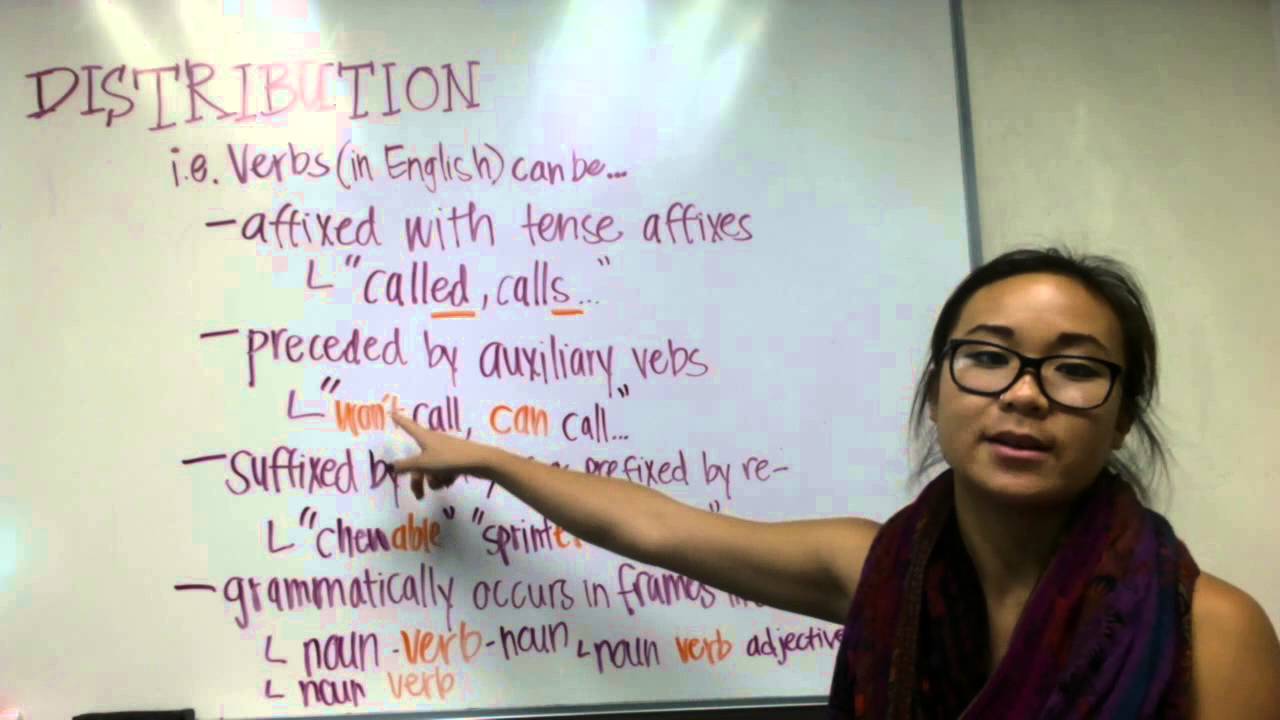 DISTRIBUTION
i.e. Verbs (in English) can be...
- affixed with tense affixes
└ "called, calls..."
- preceded by auxiliary vebs
└ "won't call, can call..."
- suffixed by prefixed by re-
└ "chewable" "sprinter "
- grammatically occurs in frames
└ noun - verb - noun └ noun verb adjective
└ noun verb